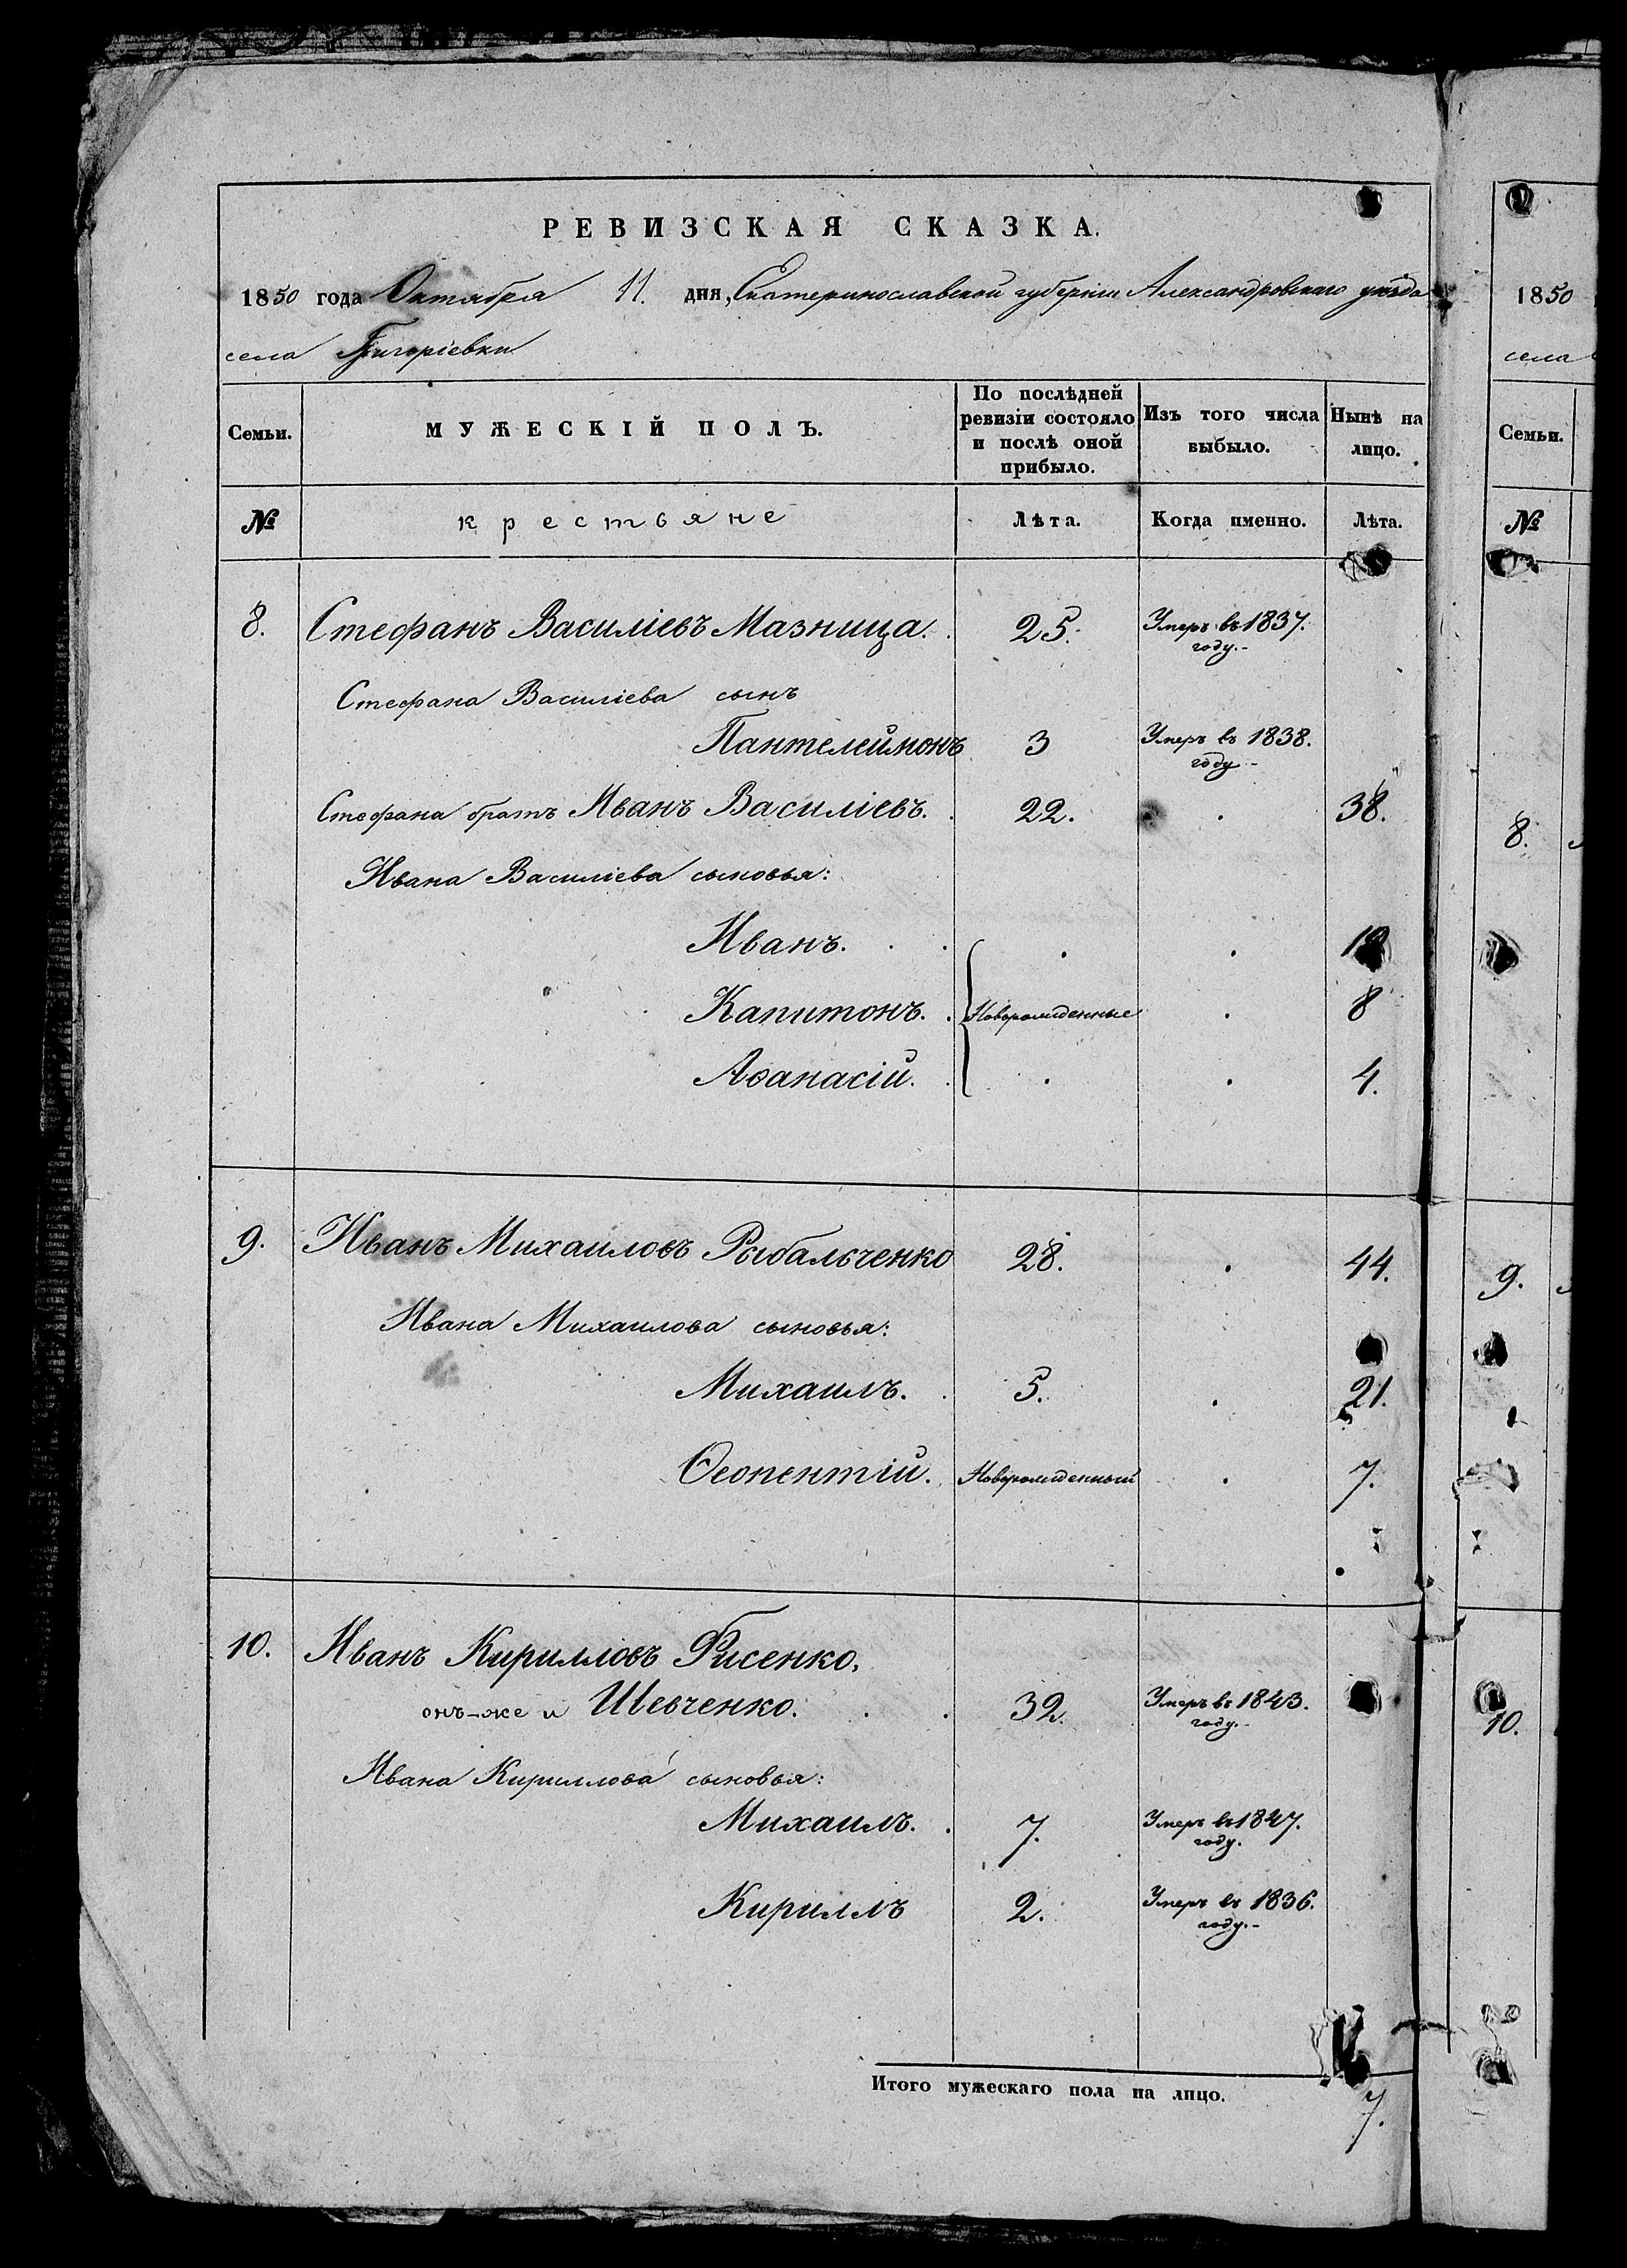 РЕВИЗСКАЯ СКАЗКА.
1850 года Октября 11. дня, Екатеринославской губерніи Александровскаго уѣзда
села Григоріевки
Семьи.
МУЖЕСКІЙ ПОЛЪ.
По послѣдней
ревизіи состояло
и послѣ оной
прибыло.
Изъ того числа
выбыло.
Нынѣ на
лицо.
№ крестьяне Лѣта. Когда именно. Лѣта.
8. Стефанъ Василіевъ Мазница. 25. Умеръ въ 1837.
году.-
Стефана Василіева сынъ
Пантелеймонъ 3 Умеръ въ 1838.
году-
Стефана братъ Иванъ Василіевъ. 22. 38.
Ивана Василіева сыновья:
Иванъ.
Капитонъ. Новорожденные 8
Аѳанасій. 4.
9. Иванъ Михаиловъ Рыбальченко 28. 44.
Ивана Михаилова сыновья:
Михаилъ. 5. 21.
Ѳеопентій. Новорожденный 7.
10. Иванъ Кирилловъ Фисенко,
онъ-же и Шевченко. 32. Умеръ въ 1843.
году.-
Ивана Кириллова сыновья:
Михаилъ. 7. Умеръ въ 1847.
году.
Кириллъ 2. Умеръ въ 1836.
году.-
Итого мужескаго пола на лицо. 7.
1850
села
Семьи.
№
8.
9.
10.